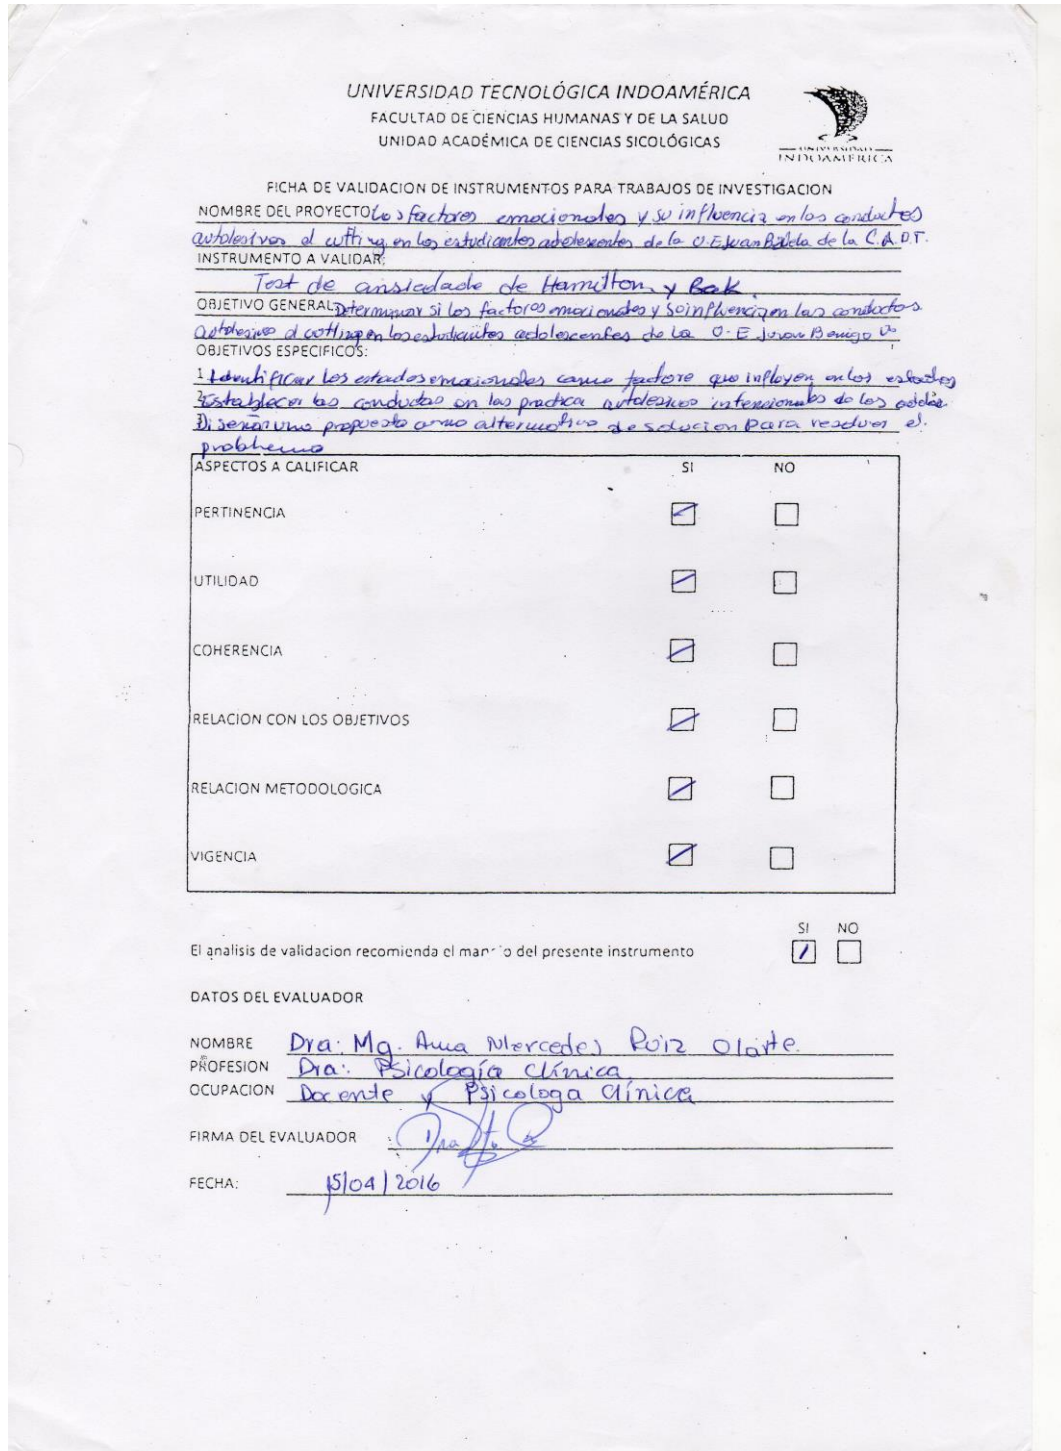 UNIVERSIDAD TECNOLÓGICA INDOAMÉRICA
FACULTAD DE CIENCIAS HUMANAS Y DE LA SALUD
UNIDAD ACADÉMICA DE CIENCIAS SICOLÓGICAS
UNIVERSIDAD
INDOAMERICA
FICHA DE VALIDACION DE INSTRUMENTOS PARA TRABAJOS DE INVESTIGACION
NOMBRE DEL PROYECTO Los factores emocionales y su influencia en las conductas
autolesivas el cutting en los estudiantes adolescentes de la U.E Juan de la C.A.D.T.
INSTRUMENTO A VALIDAR:
Test de ansiedade de Hamilton y Bak.
OBJETIVO GENERAL: Determinar si los factores emocionales y su influencia en las conductas
autolesivo el cutting en los estudiantes adolescentes de la U.E Juan Benigno
OBJETIVOS ESPECIFICOS:
1 Identificar los estados emocionales como factore que influyen en los
2 Establecer las conductas en las practica autolesivos intencionales de los
3 Diseñar una propuesta como alternativa de solucion para resolver el
problema
ASPECTOS A CALIFICAR SI NO
PERTINENCIA
UTILIDAD
COHERENCIA
RELACION CON LOS OBJETIVOS
RELACION METODOLOGICA
VIGENCIA
SI NO
El analisis de validacion recomienda el manejo del presente instrumento
DATOS DEL EVALUADOR
NOMBRE Dra: Mg. Ana Mercedes Ruiz Olarte.
PROFESION Dra: Psicología Clínica.
OCUPACION Docente y Psicologa Clínica
FIRMA DEL EVALUADOR : Dra
FECHA: 15/04/2016